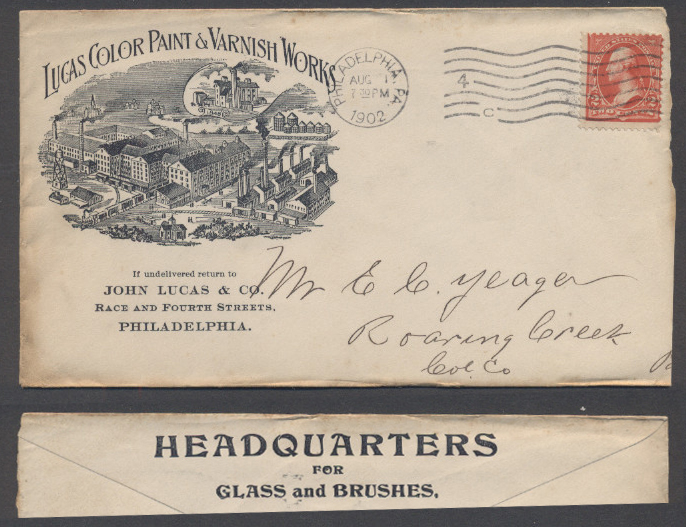 LUCAS COLOR PAINT & VARNISH WORKS
PHILADELPHIA, PA.
AUG 1
7 30 PM
1902
4
C
2 2
If undelivered return to
JOHN LUCAS & CO.
RACE AND FOURTH STREETS,
PHILADELPHIA.
Mr E. C. Yeager
Roaring Creek
Col. Co
HEADQUARTERS
FOR
GLASS and BRUSHES.